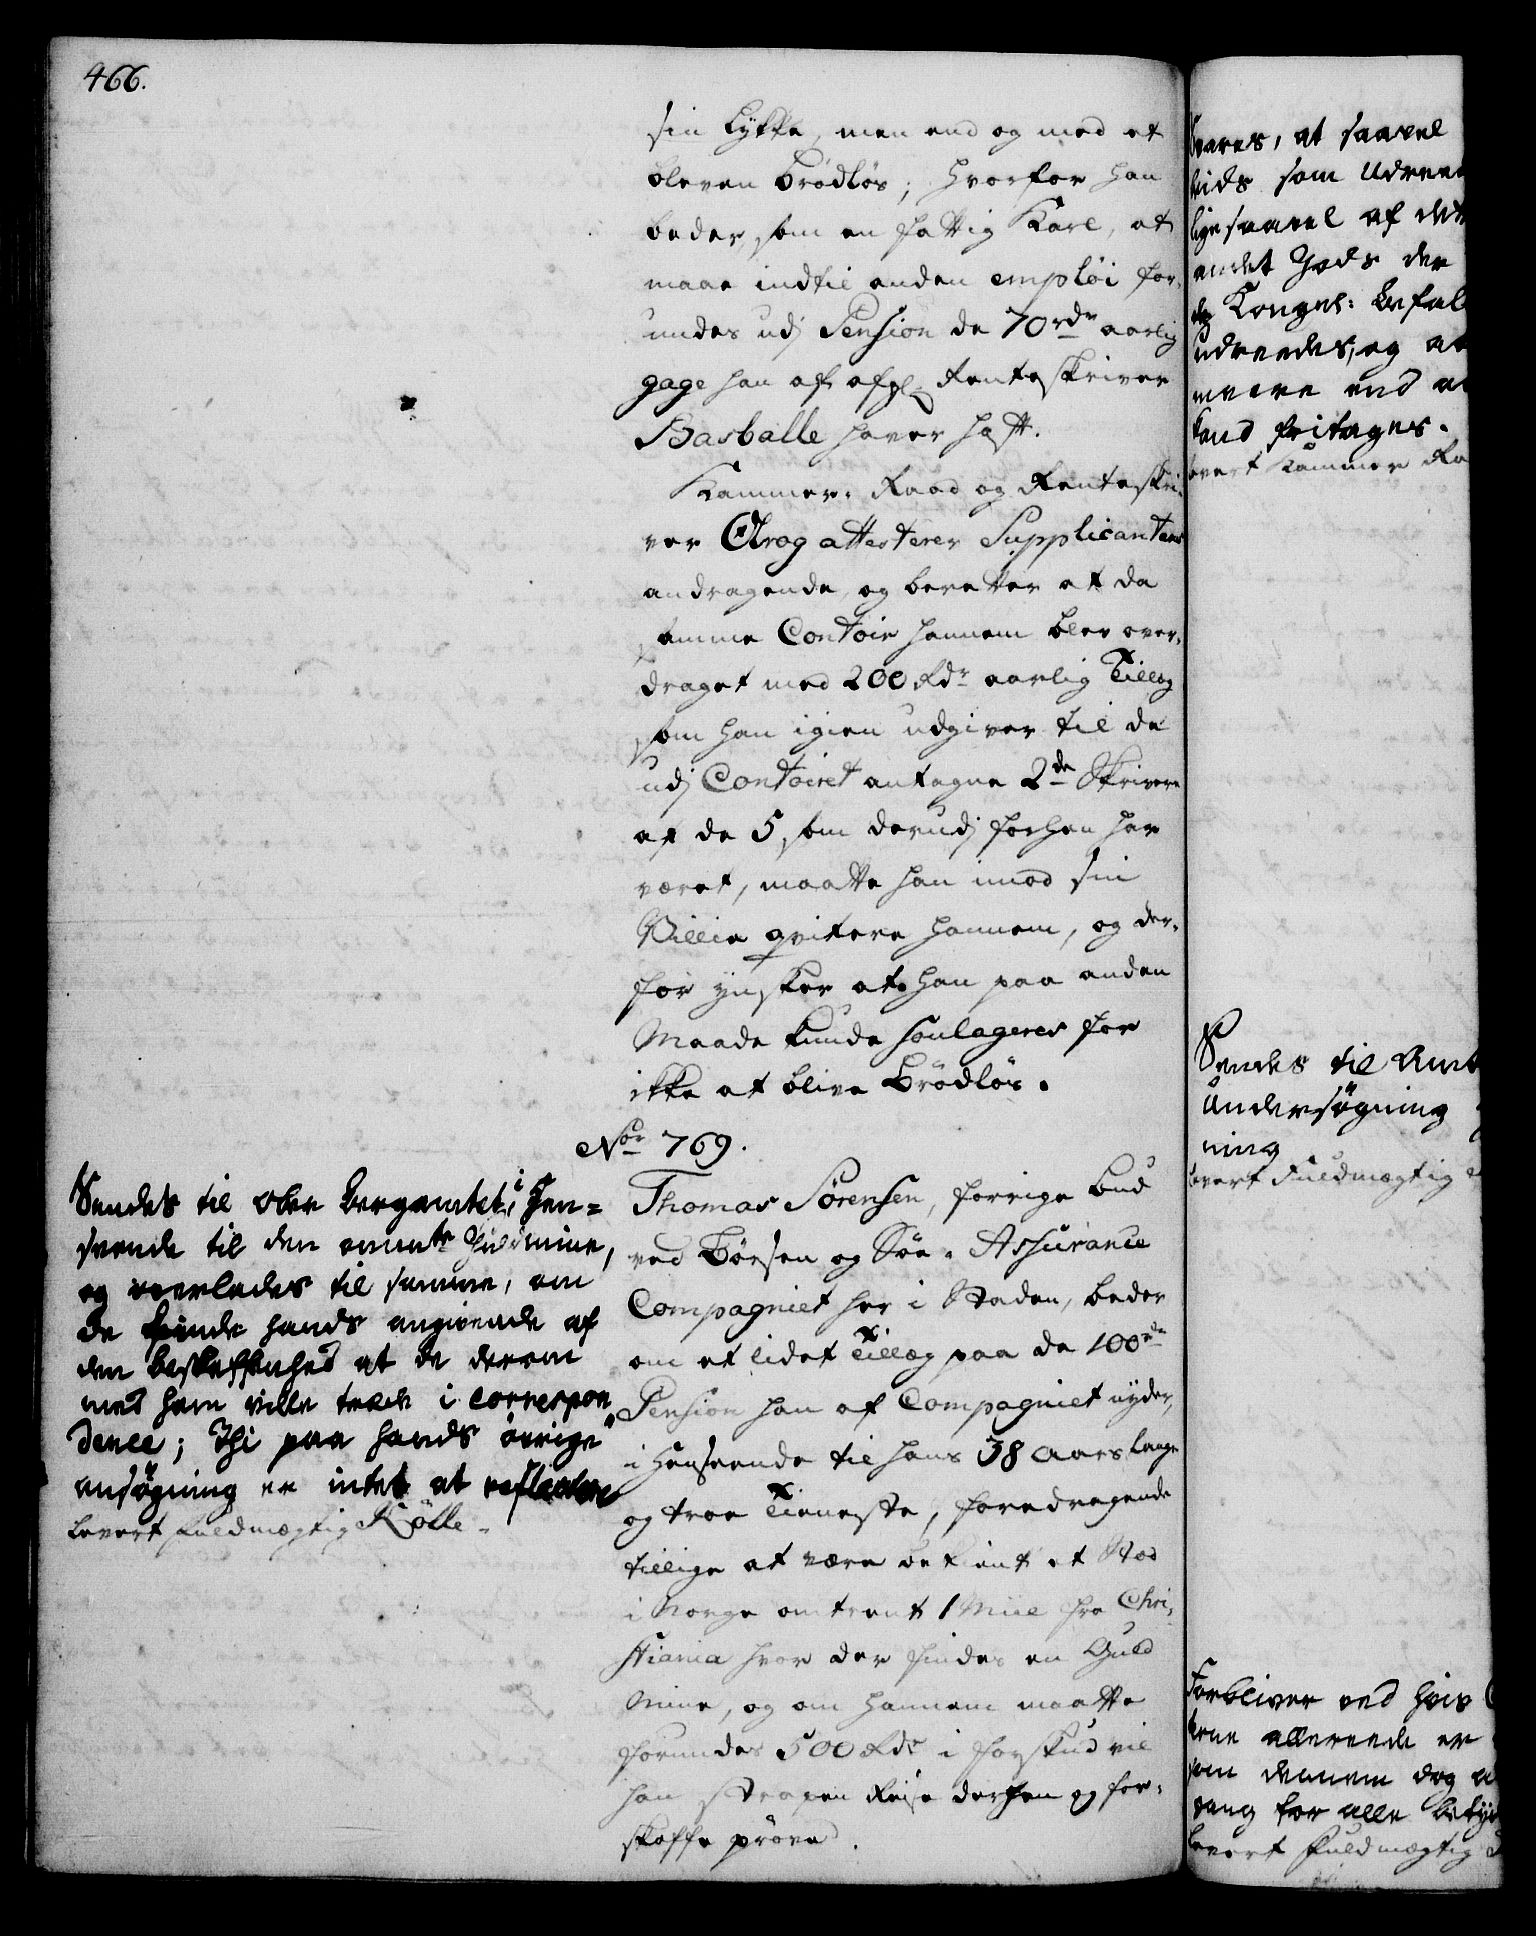 466.
sin Lykke, men end og med et
bleven brödlös; hvorfor han
beder, som en fattig Karl, at
maae indtil anden emplöi for-
undes udj Pension de 70 rdr aarlig
gage han af afgl. Renteskriver
Basballe haver haft.
Kammer-Raad og Renteskri-
ver attesterer Supplicantens
andragende, og beretter at da
samme Contoir hannem blev over-
draget med 200 Rdr aarlig Tillæg
som han igien udgiver til de
udj Contoiret antagne 2de Skrivere
af de 5, som derudj forhen har
været, maatte han imod sin
Villie qvitere hannem, og der-
for ynsker at han paa anden
Maade kunde soulageres for
ikke at blive brödlös.
Nor 769.
Thomas Sörensen, forrige bud
ved Börsen og Söe-Assurance
Compagniet her i Staden, beder
om et lidet Tillæg paa de 100 rdr
Pension han af Compagniet nyder,
i Henseende til hans 38 Aars lange
og troe Tieneste, foredragende
tillige at være bekient et Stæd
i Norge omtrent 1 Miil fra Chri-
stiania hvor der findes en Guld
Mine, og om hannem maatte
forundes 500 Rdr i forskud vil
han straxen Reise derhen og for-
skaffe pröved.
Sendes til Ober Bergamtet, i Hen=
seende til den ommte Guldmine,
og overlades til samme, om
de finde hands angivende af
den beskaffenhed at de derom
med ham ville træde i correspon
dence; Thi paa hands övrige
ansögning er intet at reflectere
Levert fuldmægtig Kölle.
at saavel
som Udreed
ligesaavel af det
andet Gods der
Kongel: befal
udreedes, og at
meere end a
kand fritages.
Levert Kammer Ra
Sendes til Amt
Undersögning
ning
Levert Fuldmægtig
Forbliver ved hvis
allereede er
som dennem dog
gang for alle betyd
Levert fuldmægtig